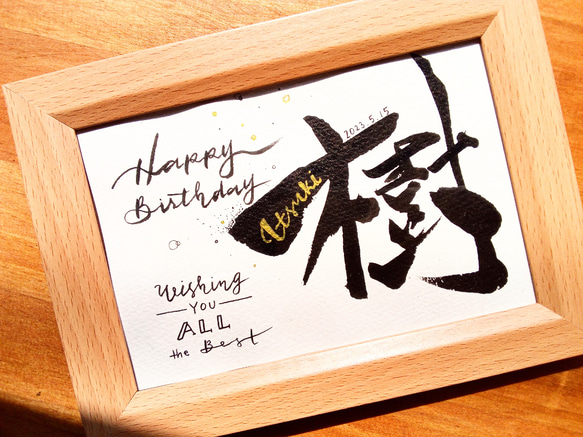 Happy
Birthday
Wishing
YOU
ALL
the Best
樹
Itsuki
2023.5.15